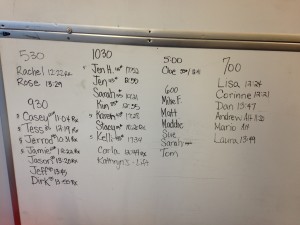 530
Rachel 12:22 Rx
Rose 13:29
930
Casey 11:04 Rx
Tess 12:19 Rx
Jerrod 10:31 Rx
Jamie 12:22 Rx
Jason 13:20 Rx
Jeff 13:45
Dirk 13:50 Rx
1030
Jen H. 17:52
Jen 12:50
Sarah 12:31
Kim 12:55
Karen 17:28
Stacy
Kelli 17:31
Carla
Kathryn's - Lift
500
Clve
600
Mike F
Matt
Maddie
Sue
Sarah
Tom
700
Lisa 12:24
Corinne 12:21
Dan 15:47
Andrew
Mario
Laura 13:49